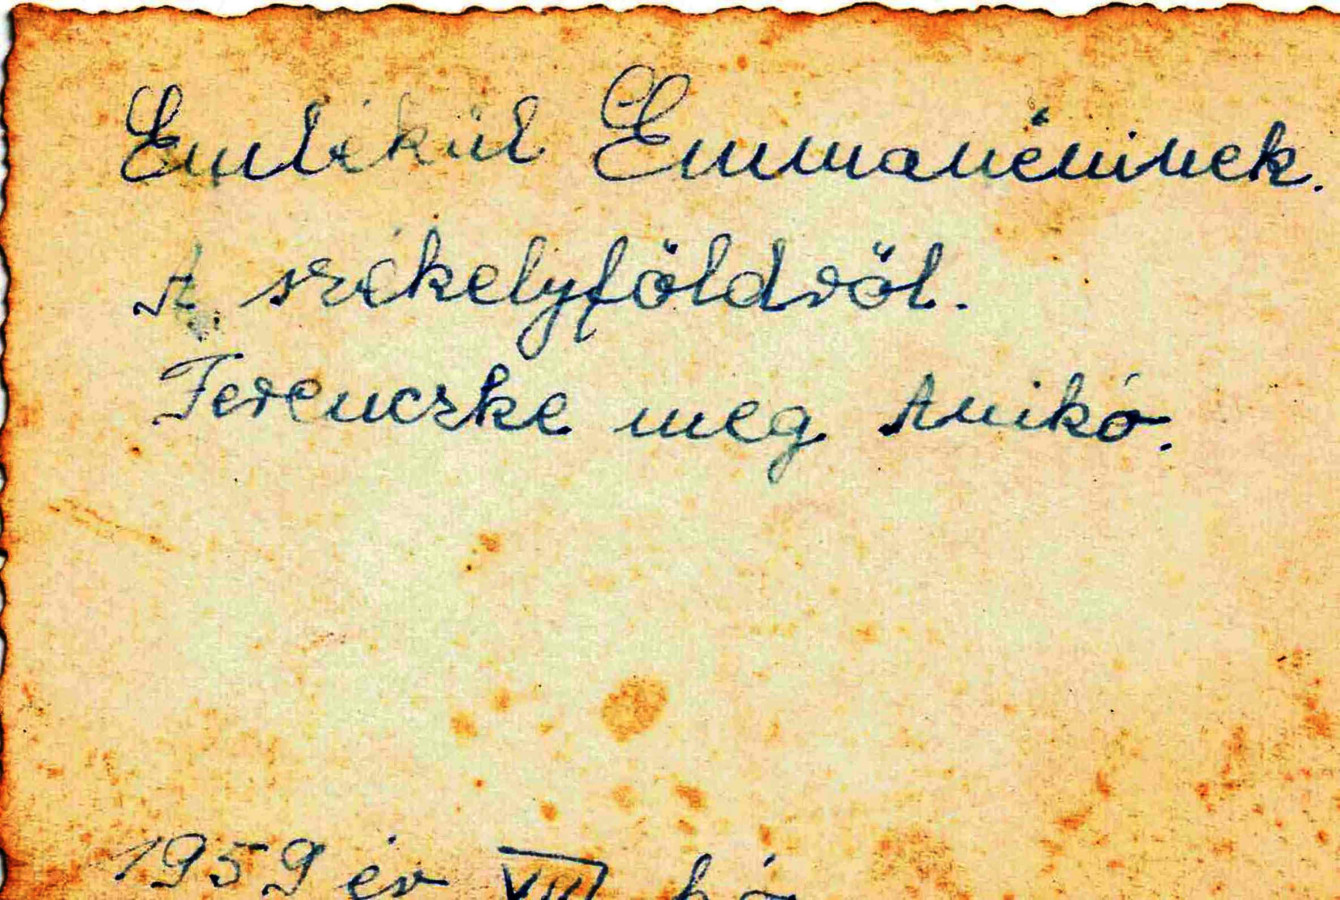 Emlékül Emmanéninek.
A székelyföldröl.
Ferenczke meg Anikó.
1959 év VIII hó